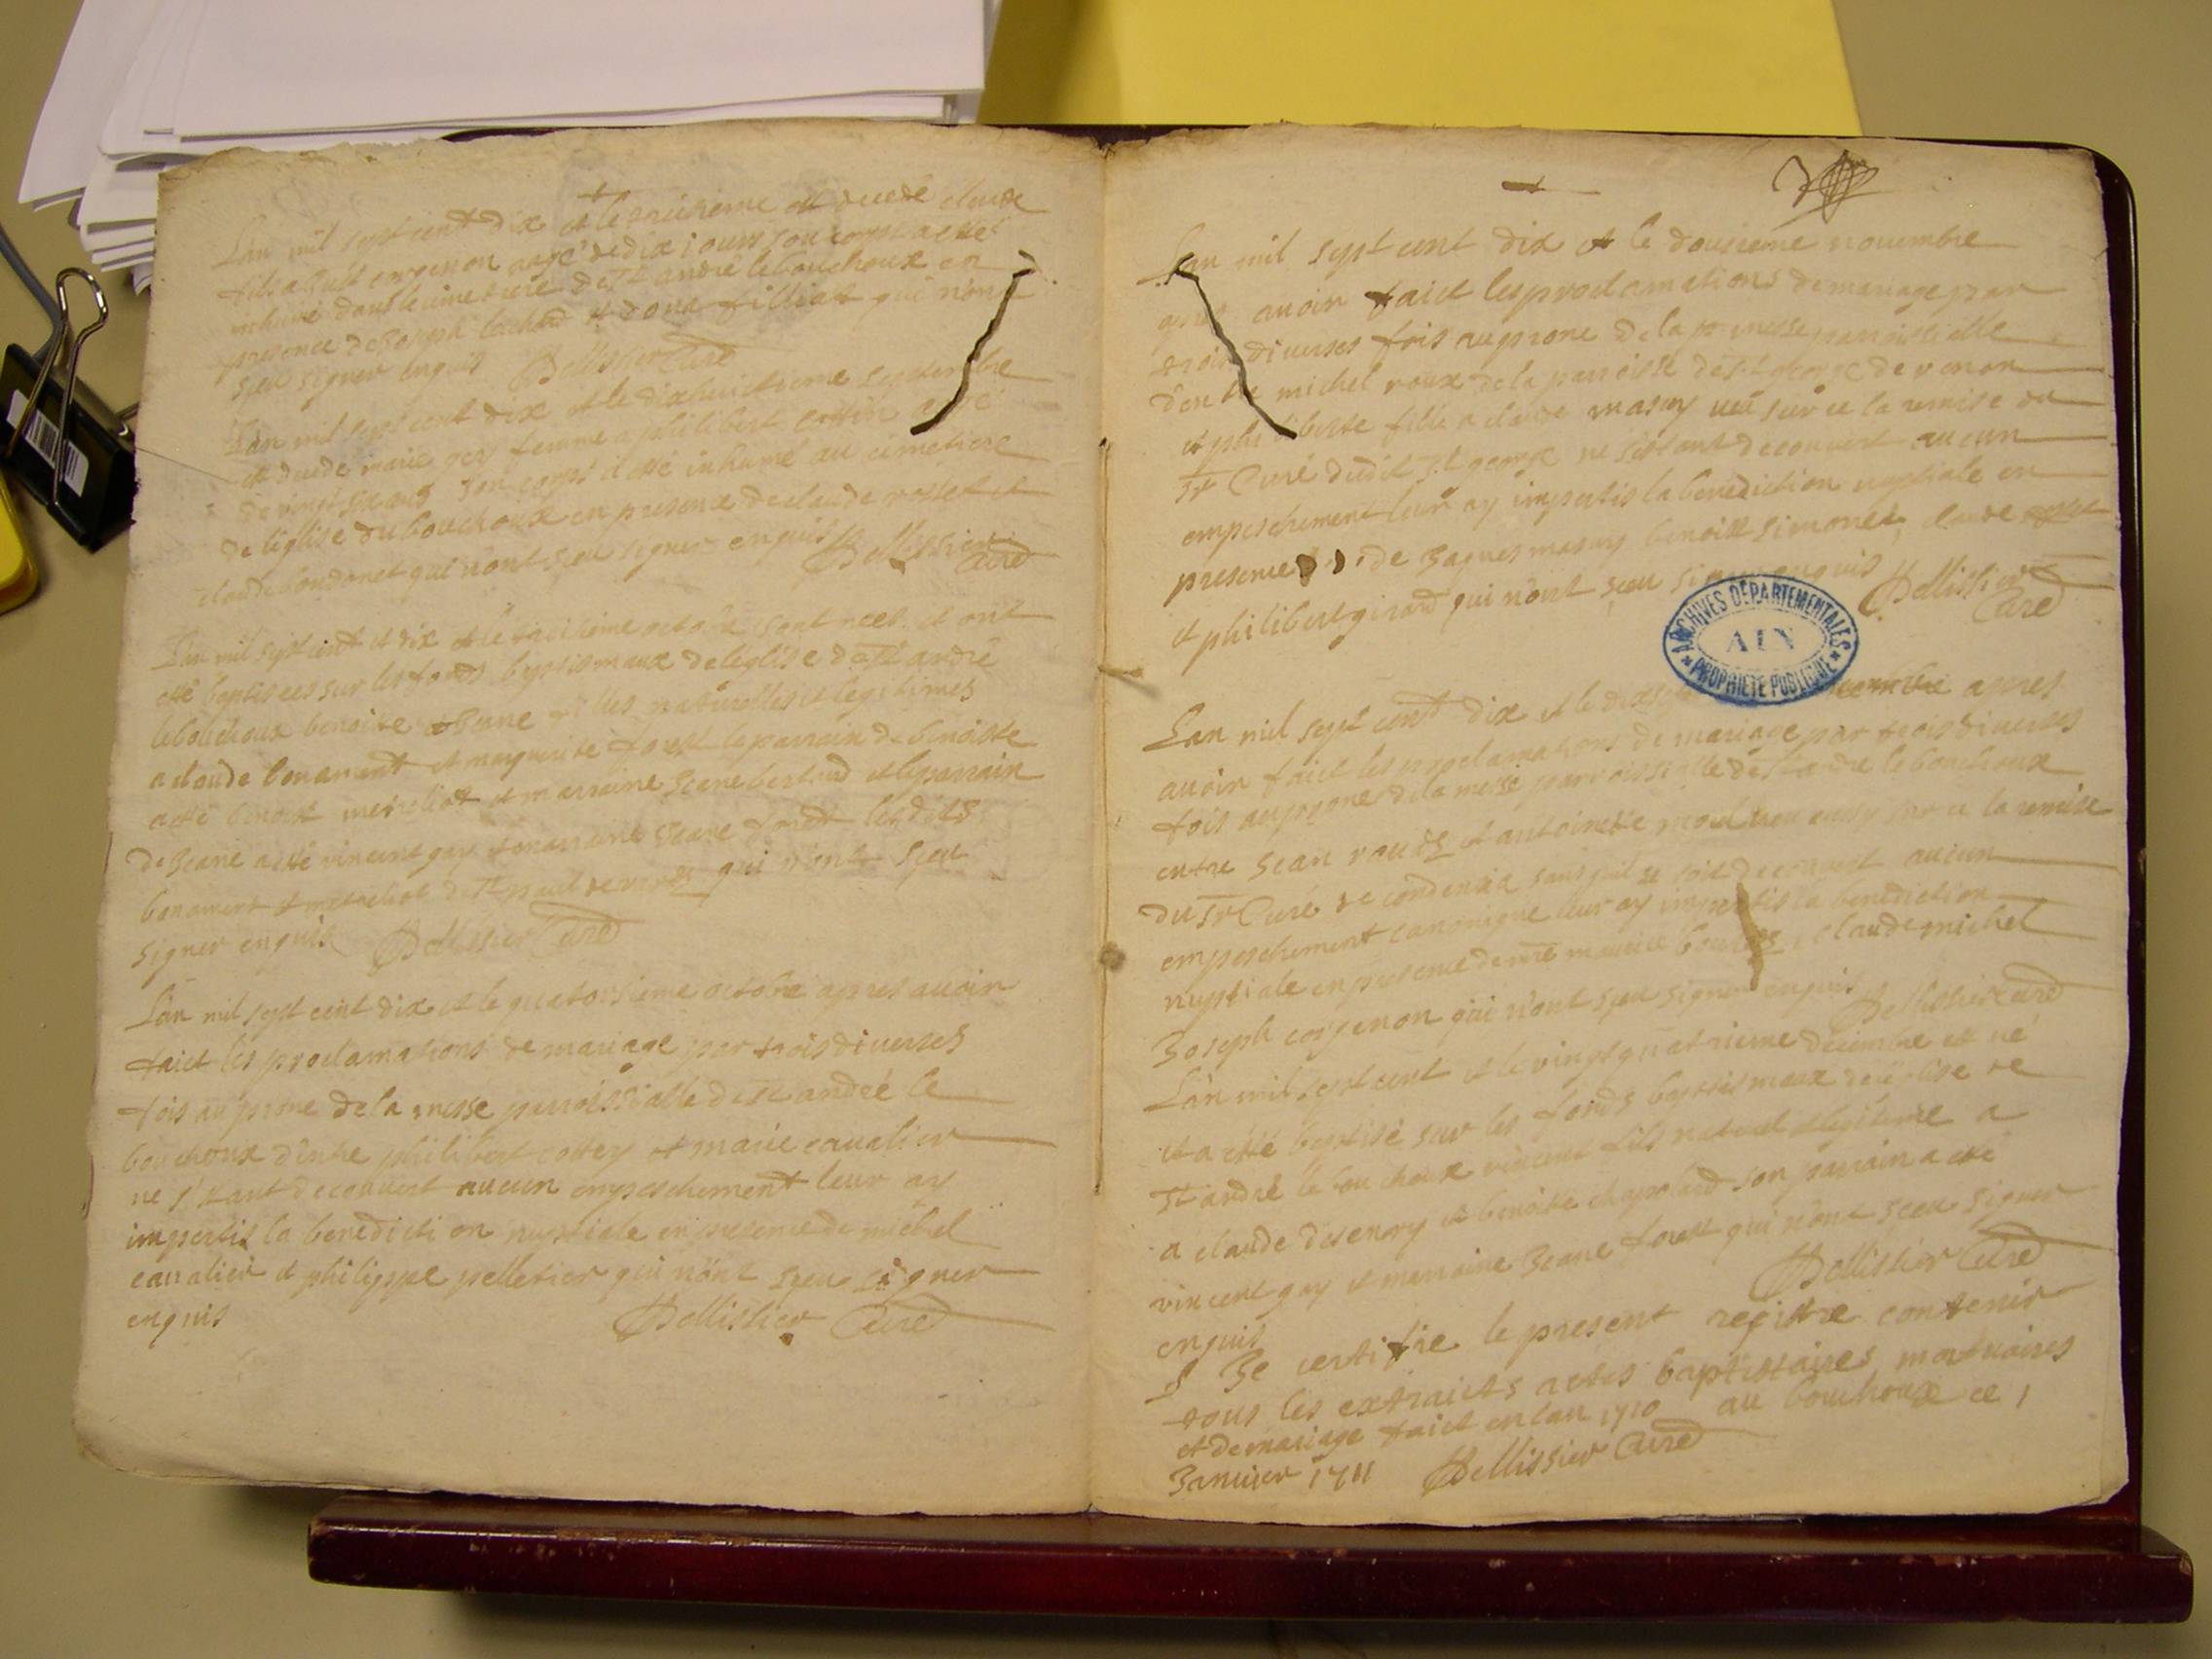 Lan mil sept cent dix et le treisieme est decedé claude
fils a corgenon aagé de dix jours son corps a esté
inhumé dans le cimetiere de St andré le bouchoux en
presence de Joseph bochard et filliat qui n'ont
sceu signer enquis Pellissier Curé
Lan mil sept cent dix et le dixhuictieme septembre
est decede marie gey femme a philibert cottin aagé
de vingt six ans son corps a esté inhumé au cimetiere
de leglise du bouchoux en presence de claude rosset et
claude boudonet qui n'ont sceu signer enquis Pellissier Curé
Lan mil sept cent et dix et le octobre sont nees et ont
esté baptisees sur les fonds baptismaux de leglise de St andré
le bouchoux benoite et Jeane filles naturelles et legitimes
a claude bonament et marguerite forest le parrain de benoiste
a esté benoist metreliot et marraine Jeane bertaud et le parrain
de Jeane a esté vincent gay et marraine Jeane forest lesdits
bonament et metreliot de St paul de varas qui n'ont sceu
signer enquis Pellissier Curé
Lan mil sept cent dix et le quatorsieme octobre apres auoir
faict les proclamations de mariage par trois diuerses
fois au prone de la messe parroissialle de St andrée le
bouchoux d'entre philibert cottey et marie caualier
ne s'etant decouuert aucun empeschement leur ay
impertis la benediction nuptiale en presence de michel
caualier et philippe pelletier qui n'ont sceu signer
enquis Pellissier Curé
Lan mil sept cent dix et le dousieme nouembre
apres auoir faict les proclamations de mariage par
trois diuerses fois au prone de la messe parroissialle
d'entre michel roux de la parroisse de St george de renon
et philiberte fille a claude masuy veü sur ce la remise du
Sr Curé dudit St george ne s'estant decouuert aucun
empeschement leur ay impertis la benediction nuptiale en
presence de Jaques masuy benoist simonet, claude
et philibert girard qui n'ont sceu signer enquis Pellissier
Curé
ARCHIVES DÉPARTEMENTALES
AIN
PROPRIÉTÉ PUBLIQUE
Lan mil sept cent dix et le apres
auoir faict les proclamations de mariage par trois diuerses
fois au prone de la messe parroissialle de St andre le bouchoux
entre Jean et antoinette sur ce la remise
du Sr Curé de condeissia sans quil se soit decouuert aucun
empeschement canonique leur ay impertis la benediction
nuptiale en presence de mre maurice et claude michel
Joseph corgenon qui n'ont sceu signer enquis Pellissier Curé
Lan mil sept cent et le vingt quatrieme decembre est né
et a esté baptisé sur les fonds baptismaux de leglise de
St andré le bouchoux vincent fils naturel et legitime a
a claude desenry et benoite chapolard son parrain a esté
vincent gay et marraine Jeane forest qui n'ont sceu signer
enquis Pellissier Curé
Je certifie le present registre contenir
tous les extraicts actes baptistaires mortuaires
et de mariage faict en lan 1710 au bouchoux ce 1
Januier 1711 Pellissier Curé